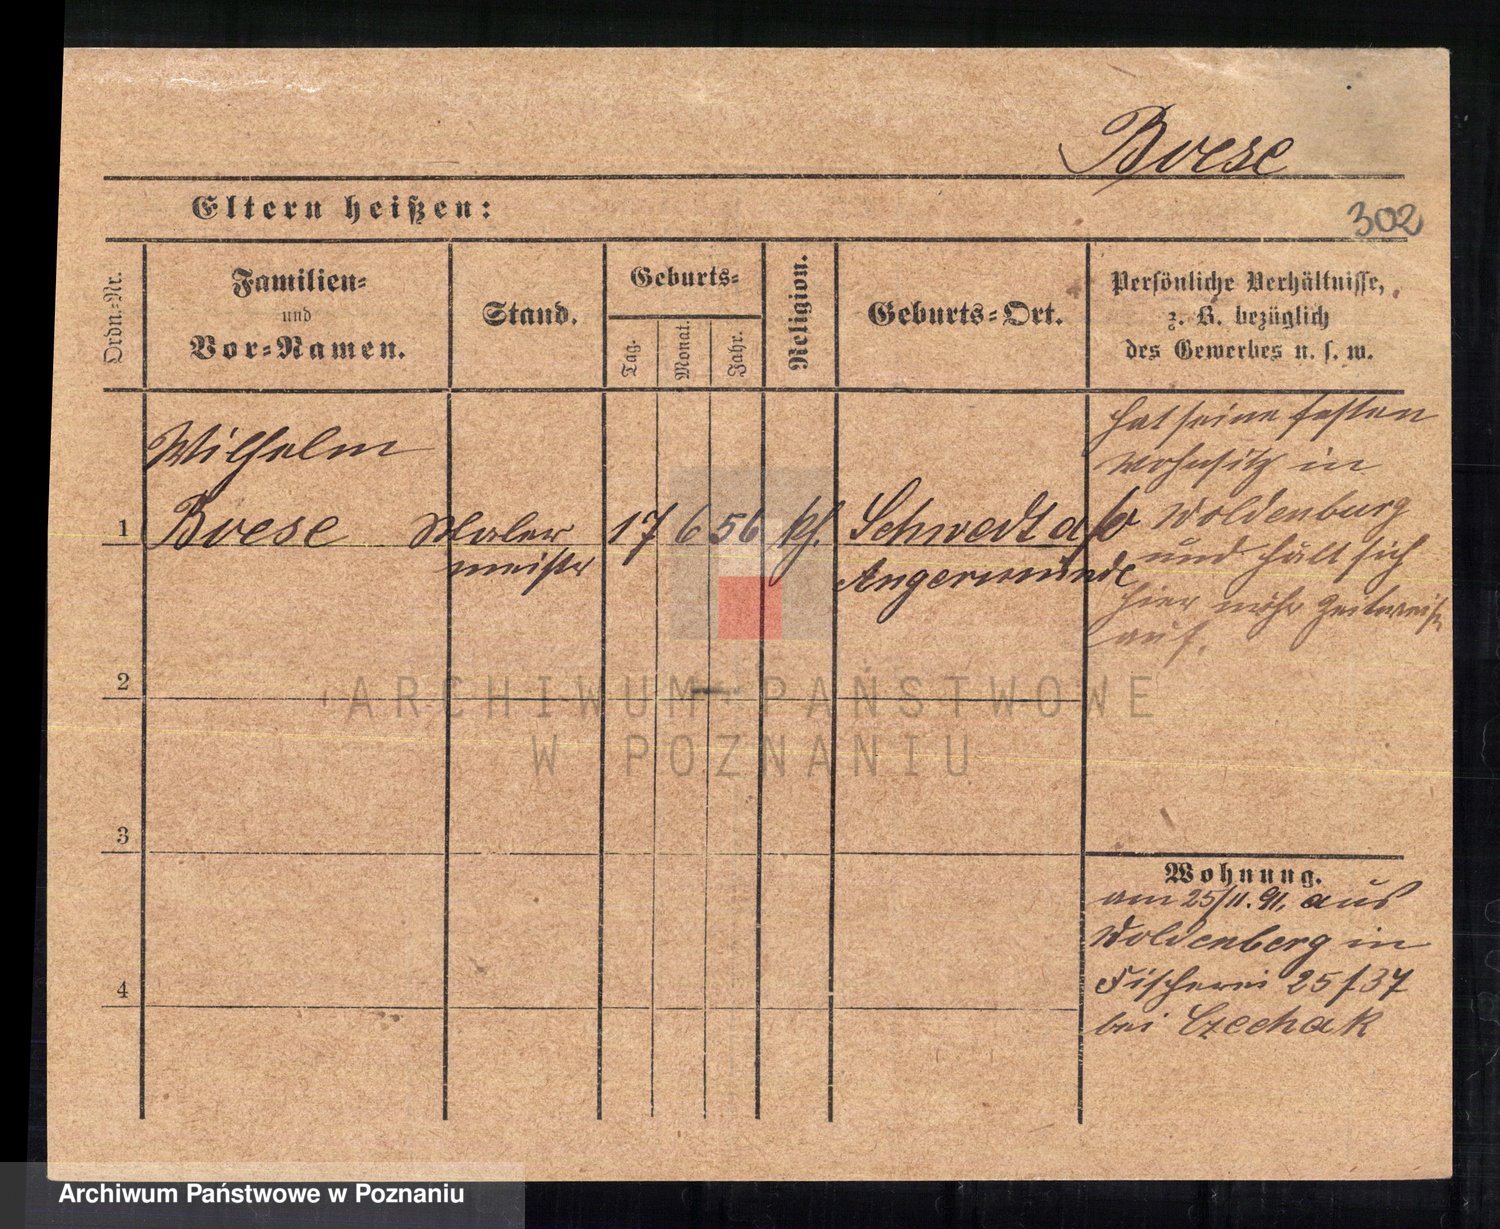 Boese
302
Eltern heißen:
Ordn.-Nr.
Familien-
und
Vor-Namen.
Stand.
Geburts-
Tag.
Monat.
Jahr.
Religion.
Geburts-Ort.
Persönliche Verhältnisse,
z. B. bezüglich
des Gewerbes u. s. w.
1
Wilhelm
Boese
Maler
meister
17
6
56
Schwedt a/o
Angermünde
hat seine festen
Wohnsitz in
Woldenburg
und hält sich
hier mehr zeitweise
auf.
2
3
4
Wohnung.
am 25/11. 91. aus
Woldenberg in
Fischerei 25 f. 37
bei Czechak
ARCHIWUM PAŃSTWOWE
W POZNANIU
Archiwum Państwowe w Poznaniu